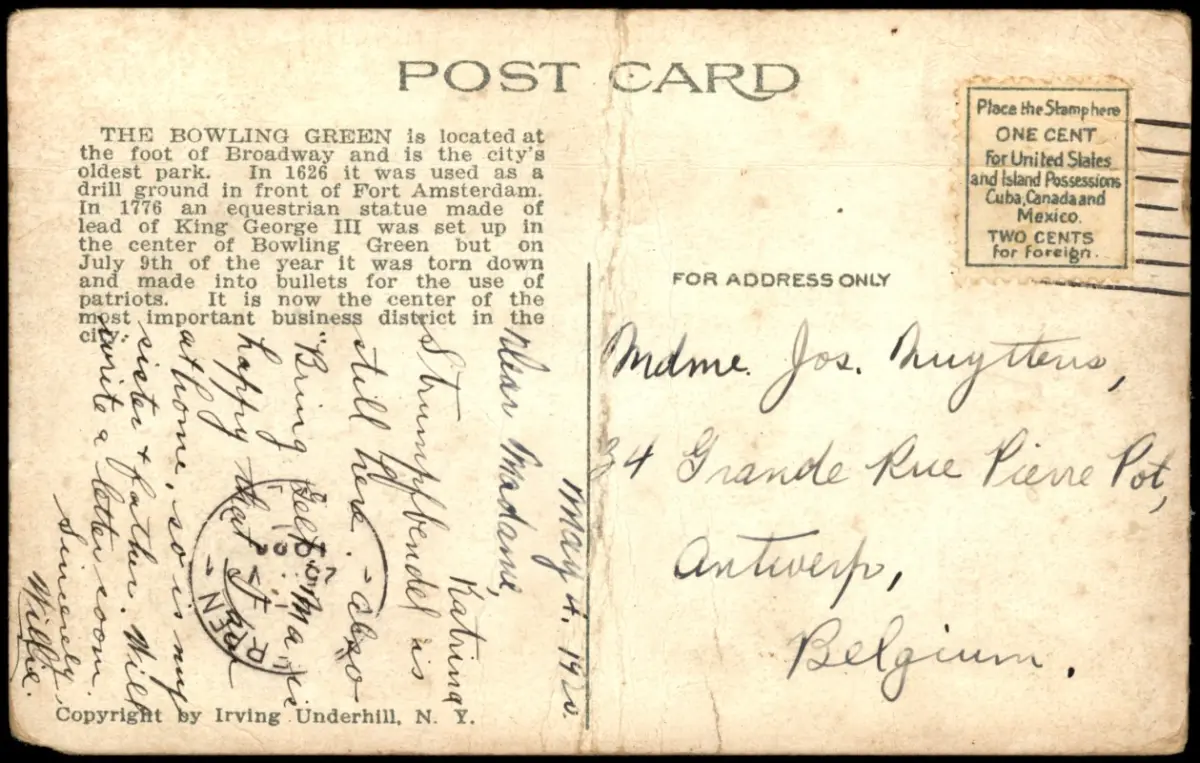 POST CARD
THE BOWLING GREEN is located at
the foot of Broadway and is the city's
oldest park. In 1626 it was used as a
drill ground in front of Fort Amsterdam.
In 1776 an equestrian statue made of
lead of King George III was set up in
the center of Bowling Green but on
July 9th of the year it was torn down
and made into bullets for the use of
patriots. It is now the center of the
most important business district in the
city.
May 4. 1920.
Dear Madame,
Katrina
Strumpfbendel is
still here. - also
"Bring Gelt". Ma is
happy that I am
at home, so is my
sister + father. Will
write a letter soon.
Sincerely
Willie.
Copyright by Irving Underhill, N. Y.
Place the Stamp here
ONE CENT
For United States
and Island Possessions
Cuba, Canada and
Mexico.
TWO CENTS
for Foreign.
FOR ADDRESS ONLY
Mdme. Jos. Nuyttens,
34 Grande Rue Pierre Pot,
Antwerp,
Belgium.